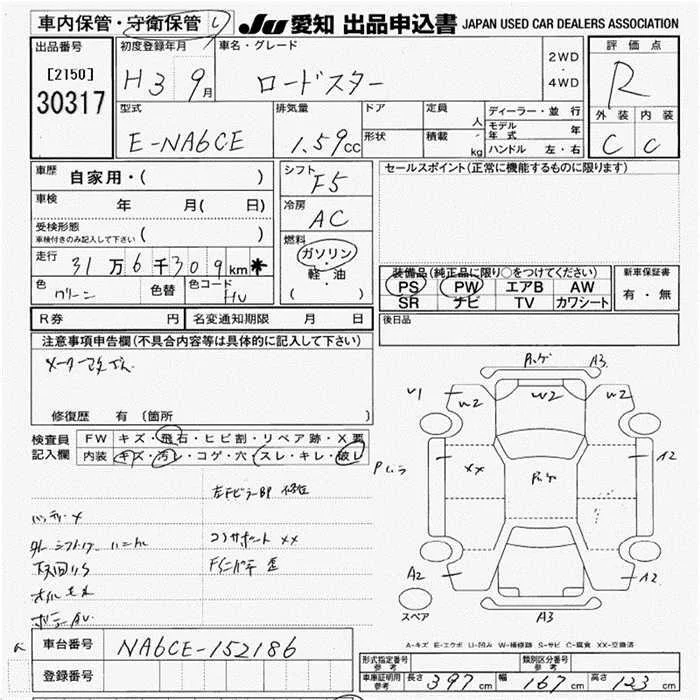 車内保管・守衛保管 JU 愛知 出品申込書 JAPAN USED CAR DEALERS ASSOCIATION
出品番号
[2150]
30317
初度登録年月
H3 9月
車名・グレード
ロードスター
2WD
・
4WD
評価点
R
外装 内装
C C
型式
E-NA6CE
排気量
1.59cc
ドア
形状
定員 人
積載 kg
ディーラー・並行
モデル年式 年
ハンドル 左・右
車歴 自家用・( )
車検 年 月( 日)
受検形態
車検付きのみ記入して下さい ( )
走行 31万6千309km *
色 グリーン 色替 色コード HU
シフト F5
冷房 AC
燃料
ガソリン
・
軽・油
・
( )
セールスポイント(正常に機能するものに限ります)
装備品(純正品に限り○をつけてください)
PS PW エアB AW
SR ナビ TV カワシート
新車保証書
有・無
R券 円 名変通知期限 月 日
後日品
注意事項申告欄(不具合内容等は具体的に記入して下さい)
修復歴 有 (箇所 )
検査員記入欄
FW キズ・飛石・ヒビ割・リペア跡・X要
内装 キズ・汚レ・コゲ・穴・スレ・キレ・破レ
左Fピラー
コアサポート XX
A3
U1
W2
W2
W2
XX
A2
A2
A2
A3
スペア
A-キズ E-エクボ U-凹み W-補修跡 S-サビ C-腐食 XX-交換済
車台番号 NA6CE-152186
登録番号
形式指定番号参考 類別区分番号参考
車庫証明用参考 長さ 397cm 幅 167cm 高さ 123cm